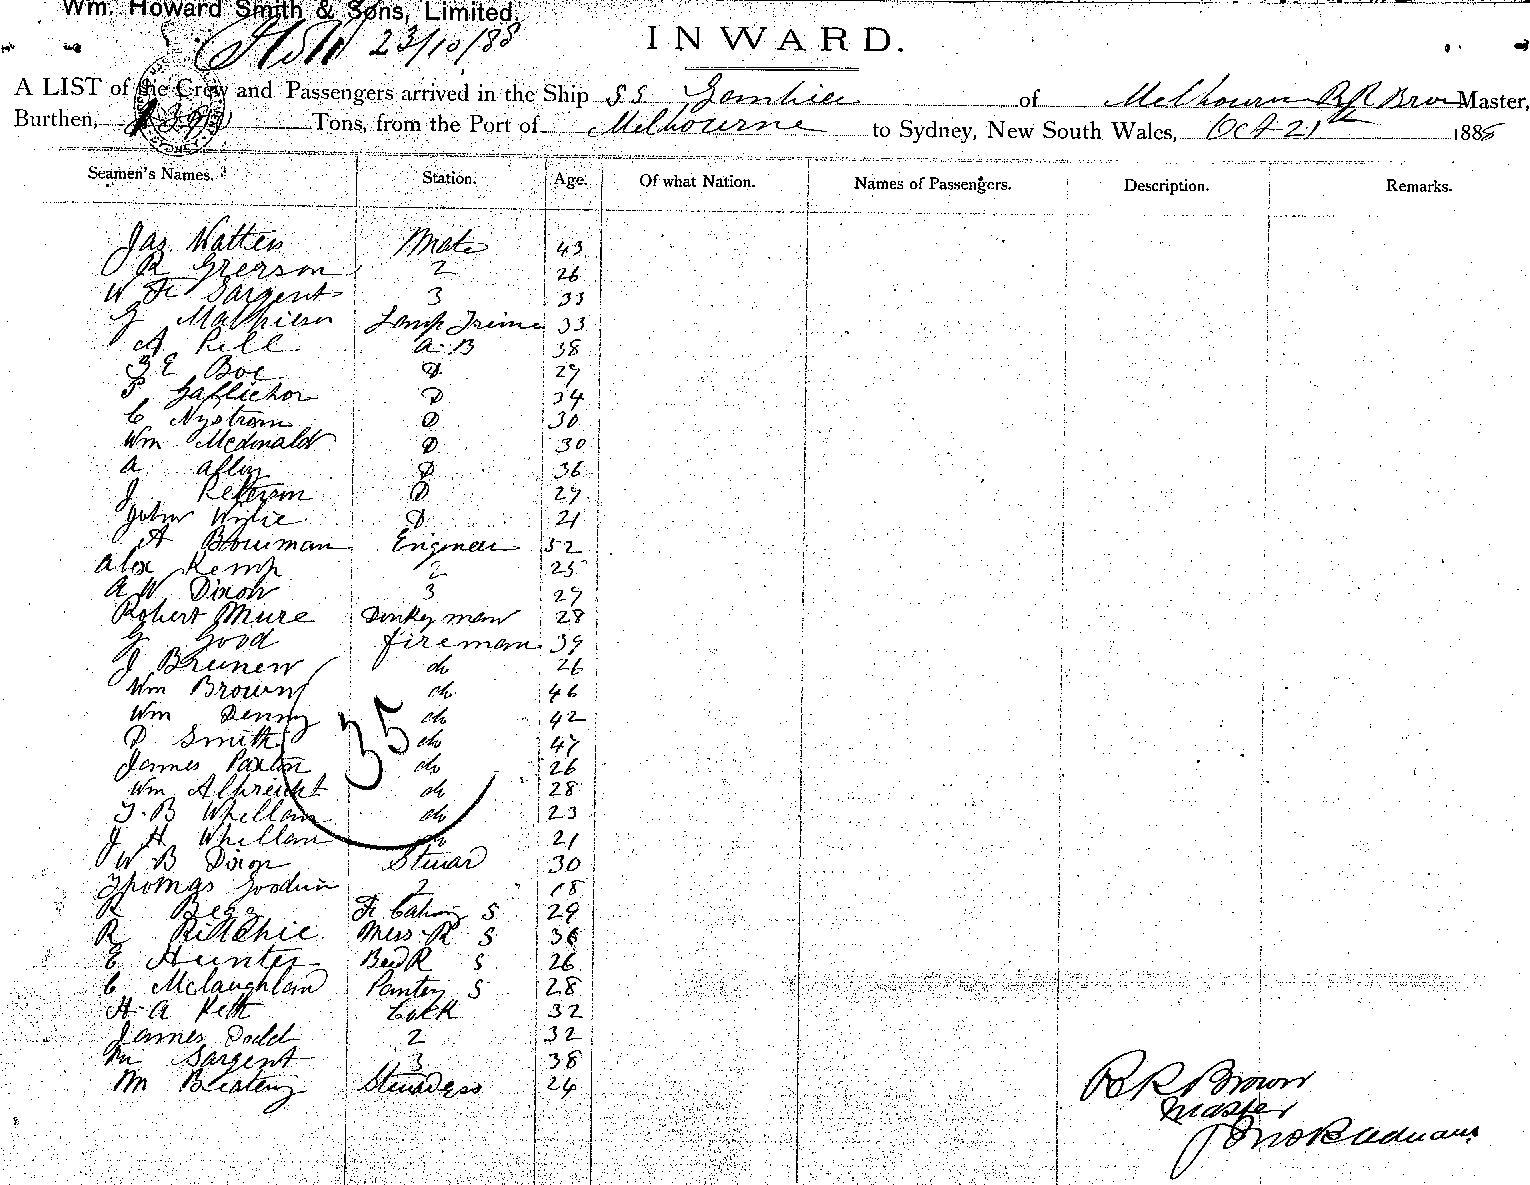 Wm. Howard Smith & Sons, Limited.
23/10/88
INWARD.
A LIST of the Crew and Passengers arrived in the Ship SS Gambier of Melbourne RR Brown Master,
Burthen, Tons, from the Port of Melbourne to Sydney, New South Wales, Oct 21st 1888
Seamen's Names. Station. Age. Of what Nation. Names of Passengers. Description. Remarks.
Jas Watters Mate 43
R Grerson 2 26
W H Sargent 3 33
G Mathieson Lamp Trimer 33
A Rell A.B 38
E Boe D 27
Gallichor D 34
C Nystrom D 30
Wm Mcdonald D 30
A D 36
J Peterson D 27
John Wylie D 21
A Bowman Engineer 52
Alex Kemp 2 25
A W Dixon 3 27
Robert Mure Donkeyman 28
G Good fireman 39
J Brunew do 26
Wm Brown do 46
Wm Denny do 42
D Smith do 47
James Paxton do 26
Wm Albrecht do 28
T. B Whellam do 23
J H Whellam do 21
W B Dixon Stuard 30
Thomas Goodwin 2 18
R Begg S 29
R Ritchie Mess R S 36
E Hunter Bed R S 26
C Mclaughlan Pantry S 28
H A Kett Cook 32
James Dodd 2 32
Sargent 3 38
35
Stuardess 24
R R Brown
Master